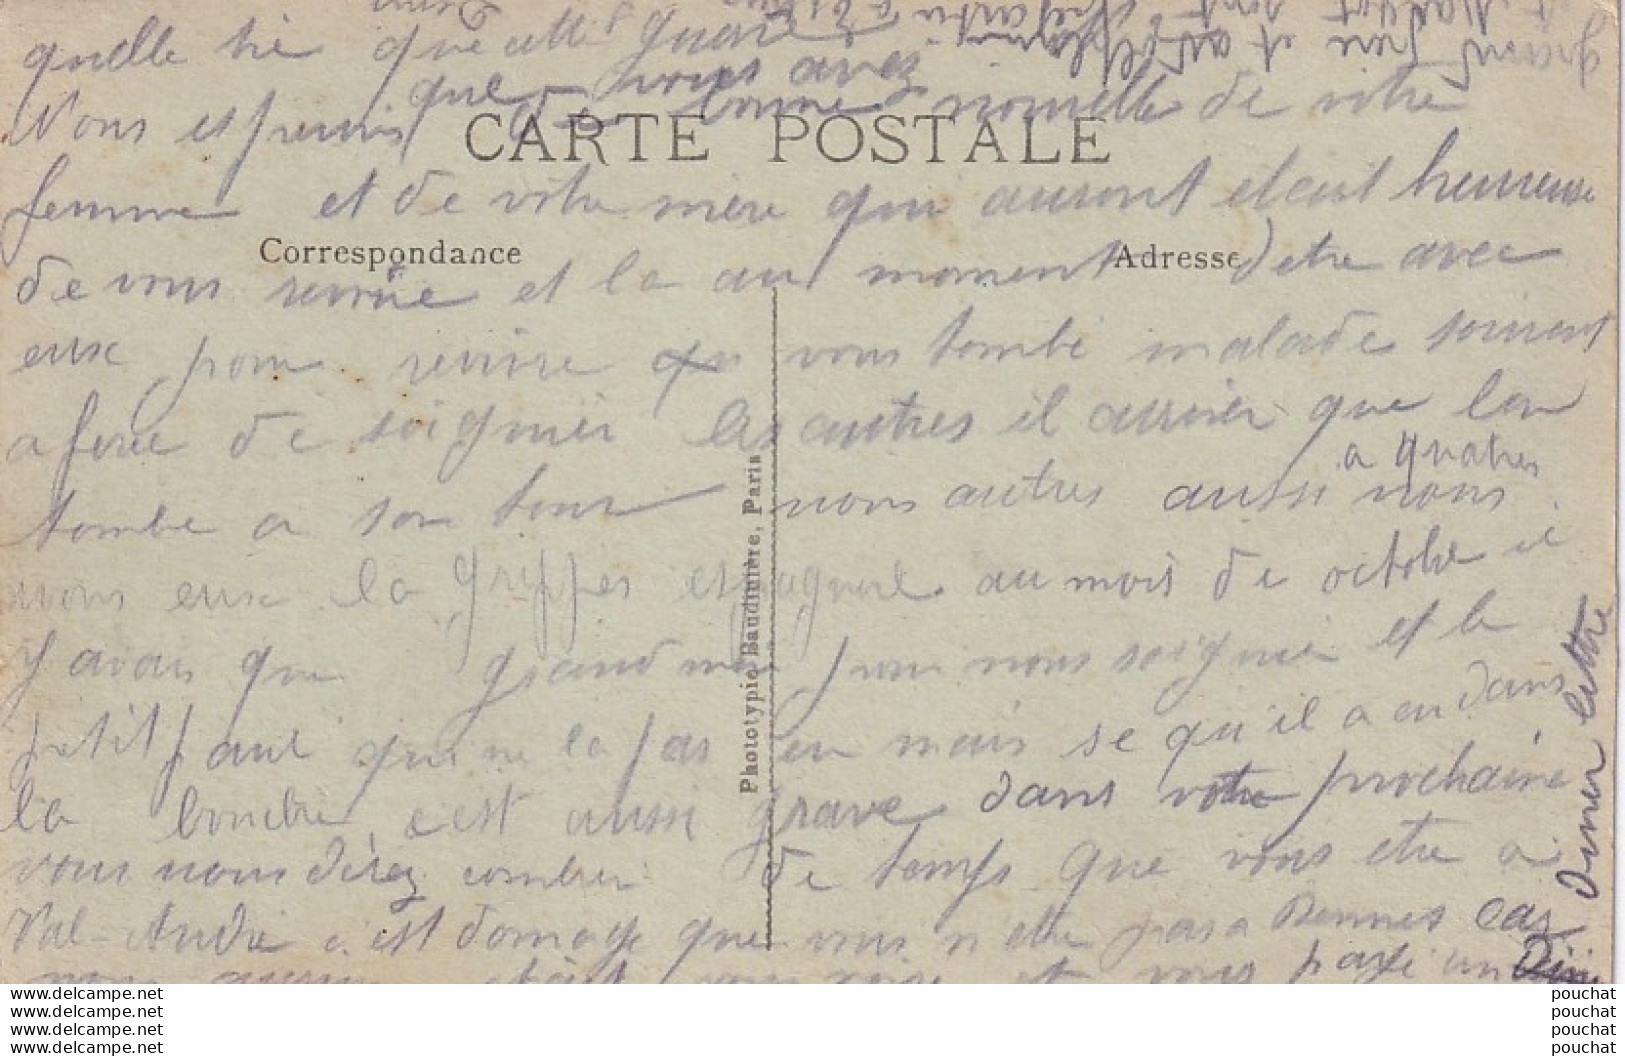 quelle vie que cette guerre
Nous esperons que vous avez de bonne nouvelle de votre
CARTE POSTALE
femme et de votre mere qui auront etait heureuse
Correspondance
Adresse
de vous revoire et la au moment d'etre avec
eux pour revivre vous tombé malade souvent
a force de soignier les autres il arriver que lon
tombe a son tour nous autres aussi nous
a quatres
nous eux la grippes espagnole au mois de octobre il
y avais que grand mere pour nous soignier et le
petit paul qui ne la pas eu mais se qu'il a eu dans
la bouche c'est aussi grave dans votre prochaine
vous nous direz combien de temps que vous etre a
Val-André c'est domage que vous n'ette pas a Rennes car
nous aurions etait vous voire et vous
Phototypie Baudinière, Paris
lettre
grand pere et
sont
www.delcampe.net
www.delcampe.net
www.delcampe.net
www.delcampe.net
pouchat
pouchat
pouchat
pouchat